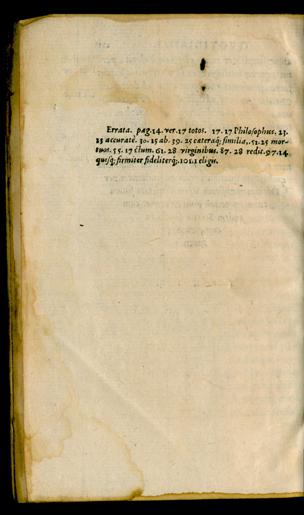 Errata. pag.14. ver.17 totos. 17.17 Philosophus. 23.
25 accuratè. 30.15 ab. 39. 25 cæteraq; similia,. 51.25 mor-
tuos. 55.17 clum. 61. 28 virginibus. 87.28 redit. 97.14
quisq; firmiter fideliterq;. 101.1 eligit.